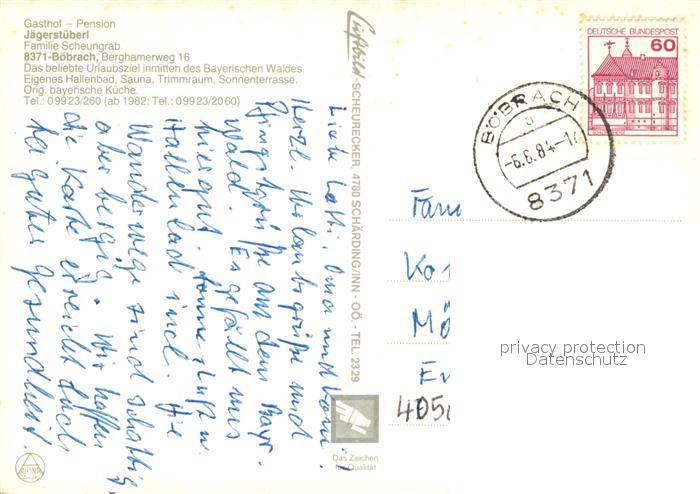 Gasthof – Pension
Jägerstüberl
Familie Scheungrab
8371-Böbrach, Berghamerweg 16
Das beliebte Urlaubsziel inmitten des Bayerischen Waldes.
Eigenes Hallenbad, Sauna, Trimmraum, Sonnenterrasse.
Orig. bayerische Küche.
Tel.: 09923/260 (ab 1982: Tel.: 09923/2060)
Liebe Oma und
Herzl. Urlaubsgrüße und
Pfingstgrüße aus dem Bayr.
Wald. Es gefällt uns
hier gut,
Hallenbad sind. Die
Wanderwege sind schattig,
aber bergig. Wir hoffen
die Karte erreicht Euch
bei guter Gesundheit.
Luftbild-SCHEURECKER, 4780 SCHÄRDING/INN - OÖ. - TEL. 2329
Das Zeichen
für Qualität
ALPINA
DEUTSCHE BUNDESPOST
60
BÖBRACH
a
-6.6.84-17
8371
Fam
Ko
Mö
405
privacy protection
Datenschutz